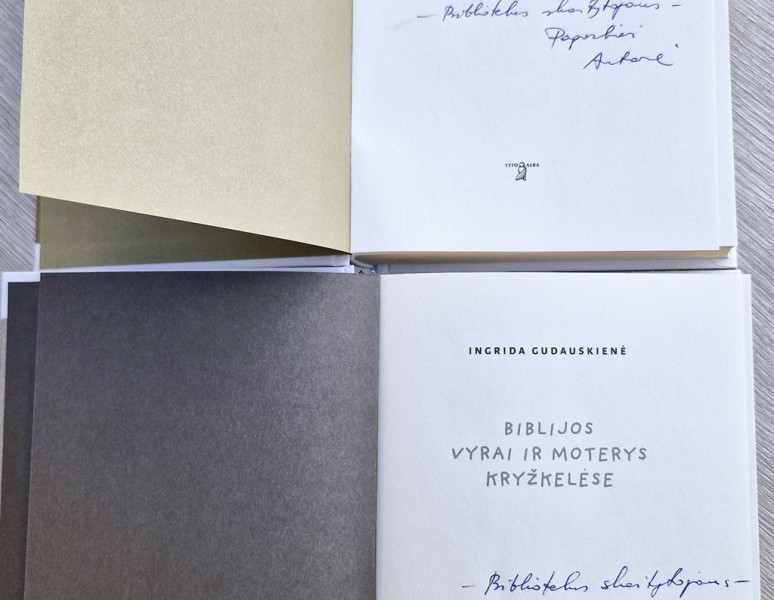 – Bibliotekos skaitytojams –
Pagarbiai
Autorė
TYTO ALBA
INGRIDA GUDAUSKIENĖ
BIBLIJOS
VYRAI IR MOTERYS
KRYŽKELĖSE
– Bibliotekos skaitytojams –